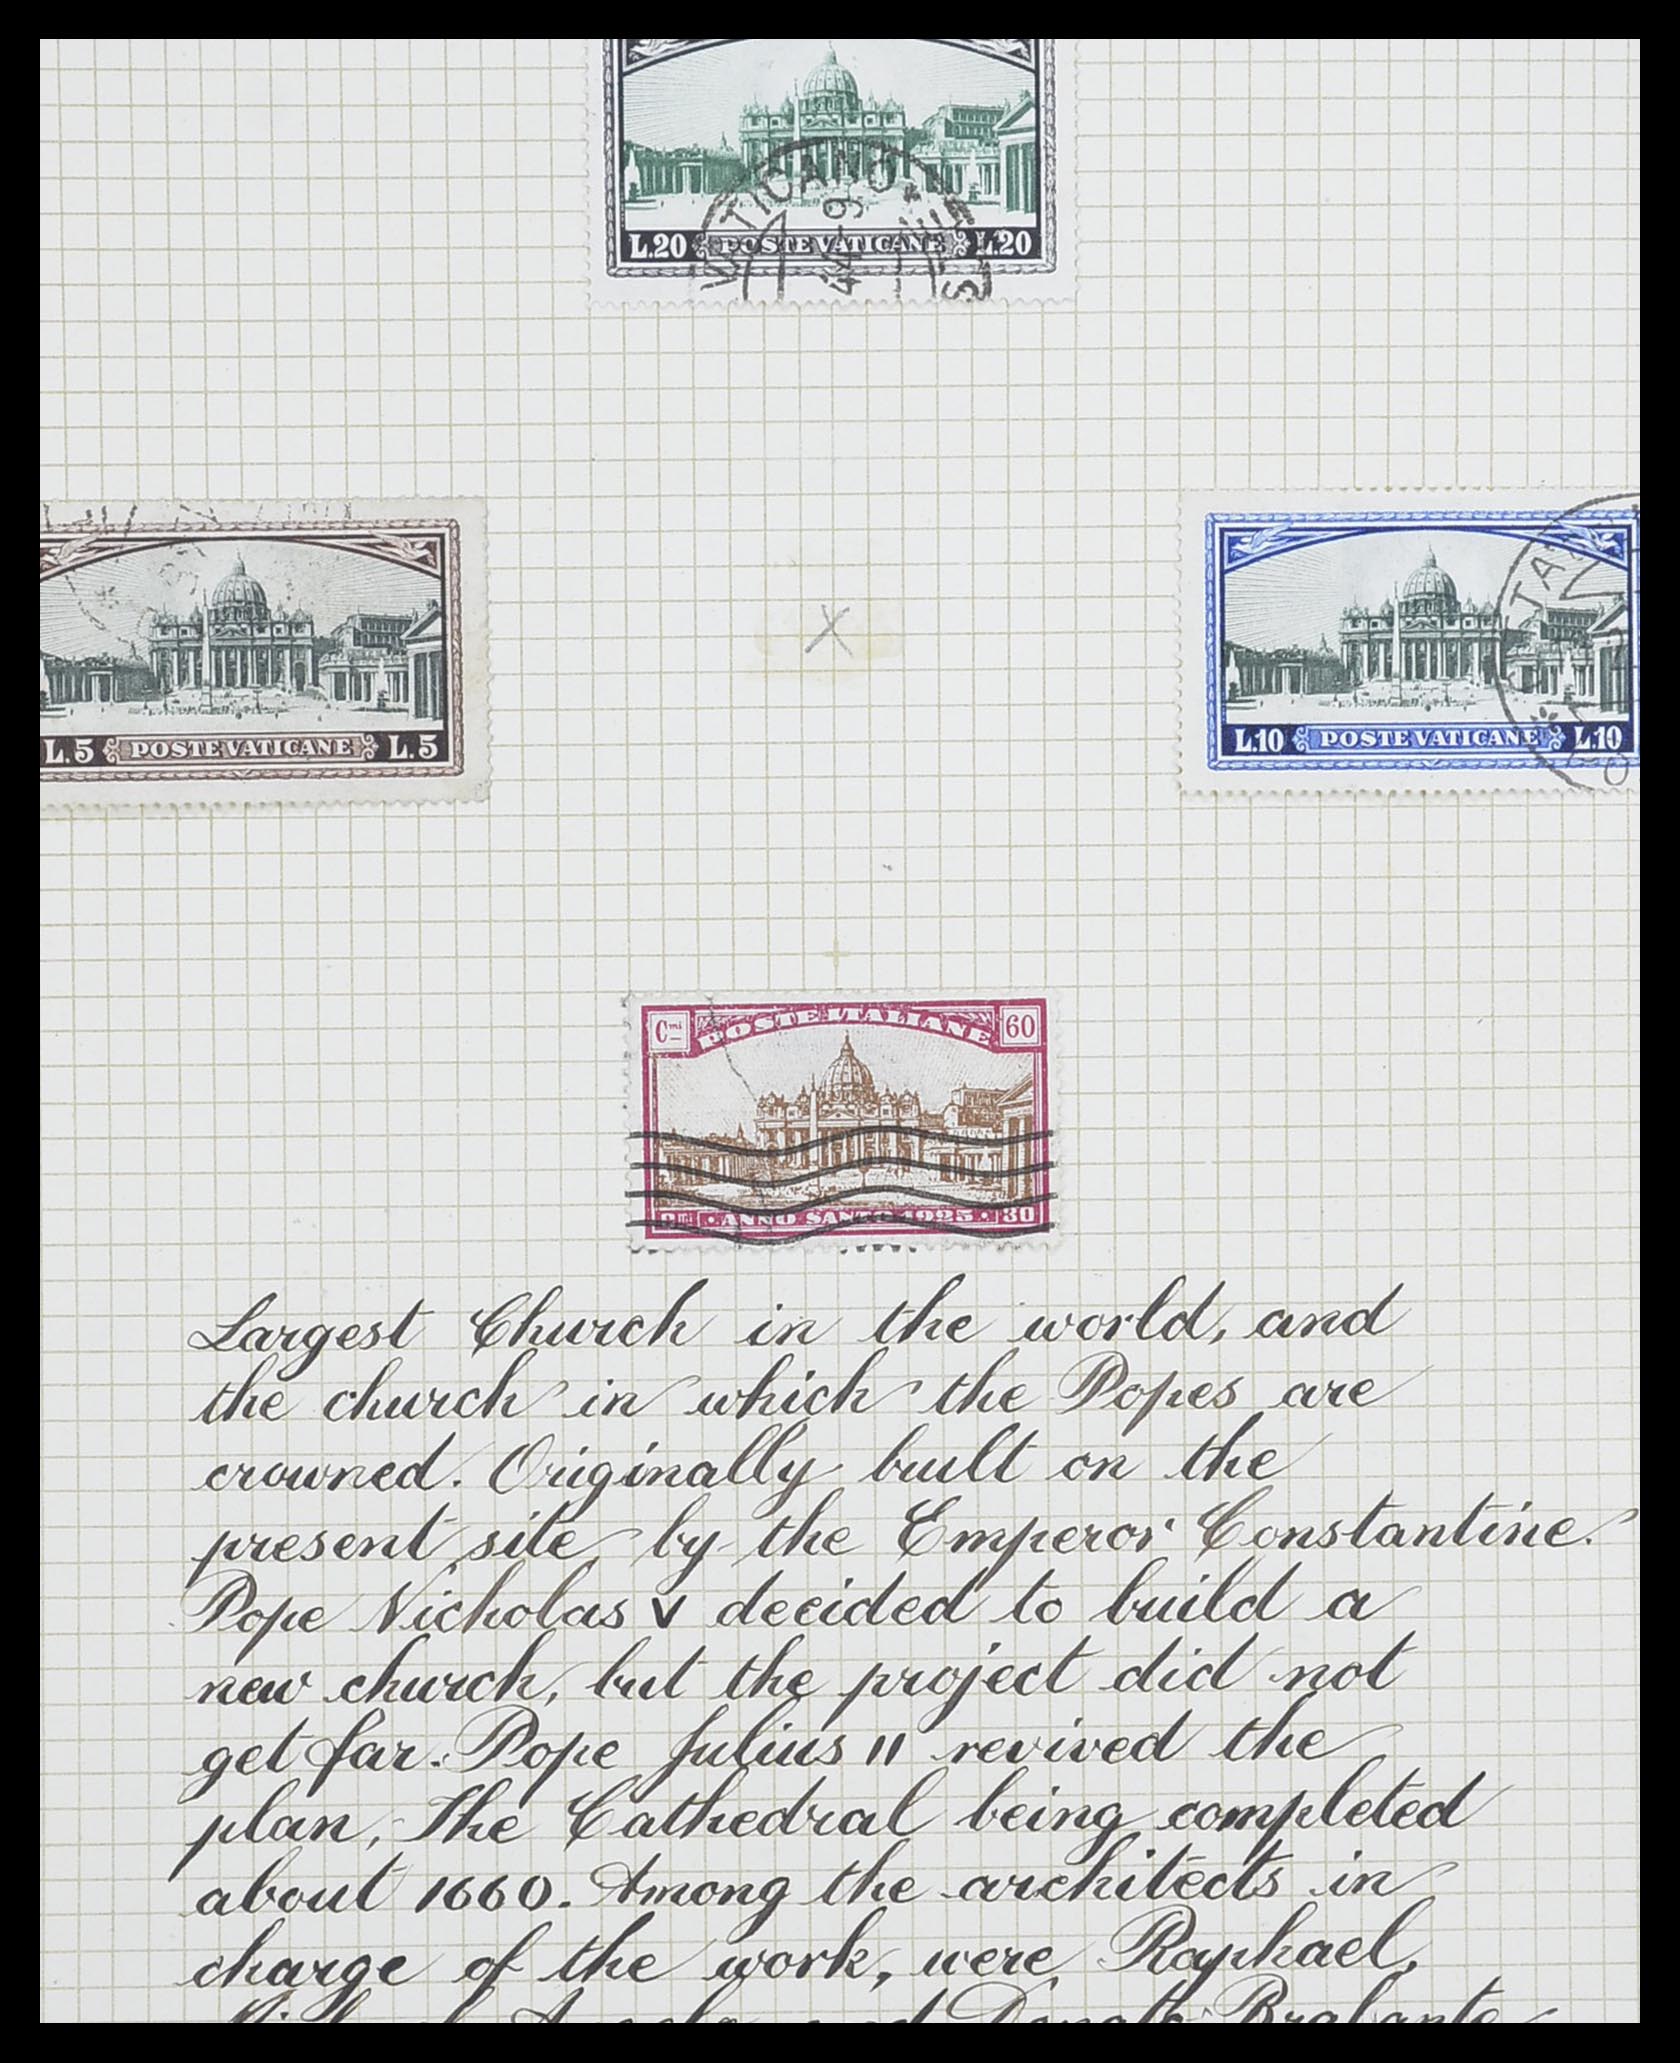 L.20 POSTE VATICANE L.20
VATICANO
L.5 POSTE VATICANE L.5
L.10 POSTE VATICANE L.10
X
Cmi POSTE ITALIANE 60
ANNO SANTO 1925 · 30
Largest Church in the world, and
the church in which the Popes are
crowned. Originally built on the
present site by the Emperor Constantine.
Pope Nicholas V decided to build a
new church, but the project did not
get far. Pope Julius II revived the
plan, The Cathedral being completed
about 1660. Among the architects in
charge of the work, were Raphael,